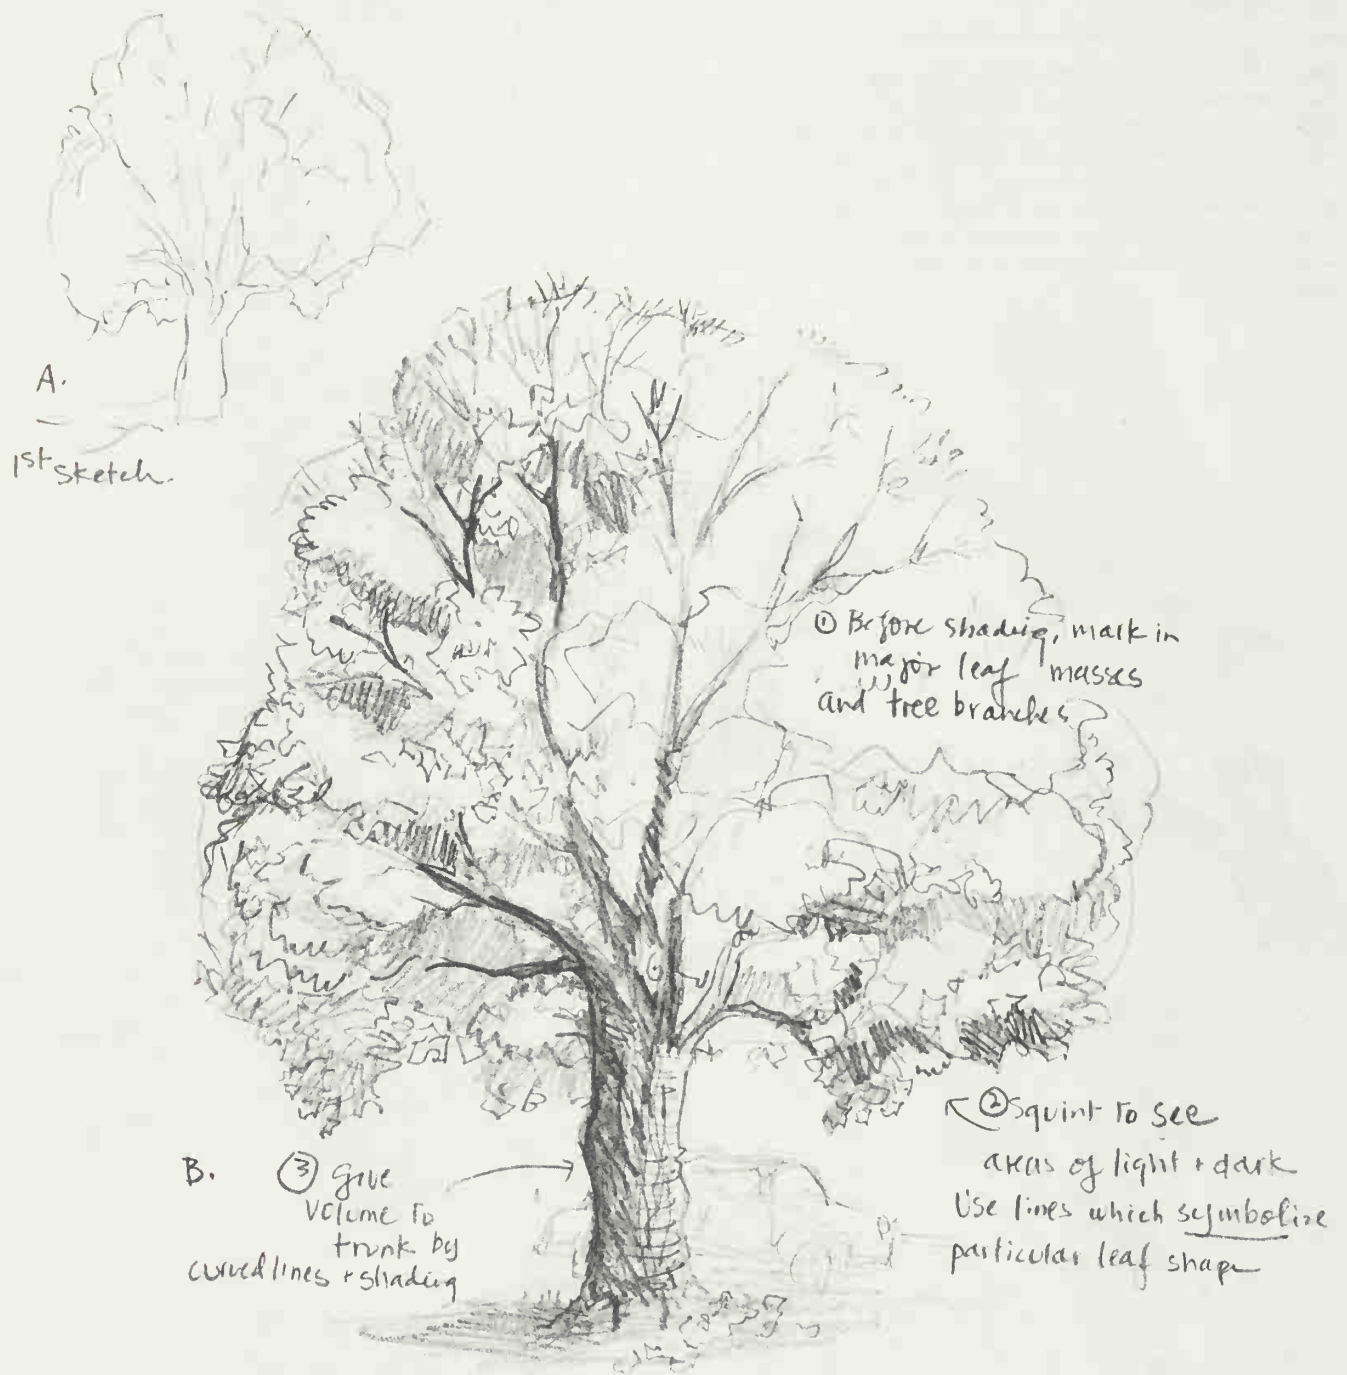 A.
1st sketch.
① Before shading, mark in
major leaf masses
and tree branches
② Squint to see
areas of light + dark
Use lines which symbolize
particular leaf shape
B.
③ Give
volume to
trunk by
curved lines + shading